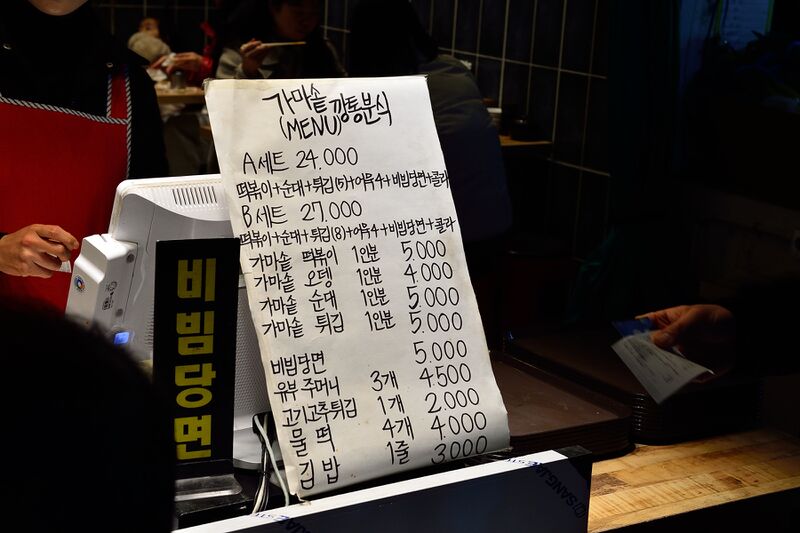 가마솥 깡통분식
(MENU)
A세트 24.000
떡볶이+순대+튀김(5)+어묵4+비빔당면+콜라
B세트 27.000
떡볶이+순대+튀김(8)+어묵4+비빔당면+콜라
가마솥 떡볶이 1인분 5.000
가마솥 오뎅 1인분 4.000
가마솥 순대 1인분 5.000
가마솥 튀김 1인분 5.000
비빔당면 5.000
유부주머니 3개 4.500
고기고추튀김 1개 2.000
물떡 4개 4.000
김밥 1줄 3.000
비빔당면